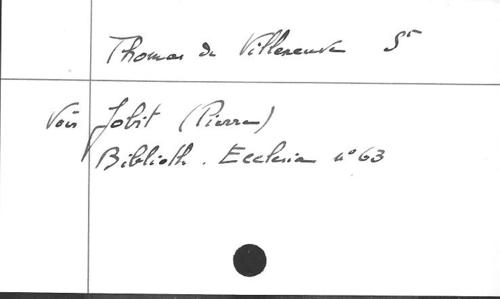 Thomas de Villeneuve St
Voir Jobit (Pierre)
Biblioth. Ecclesia n° 63